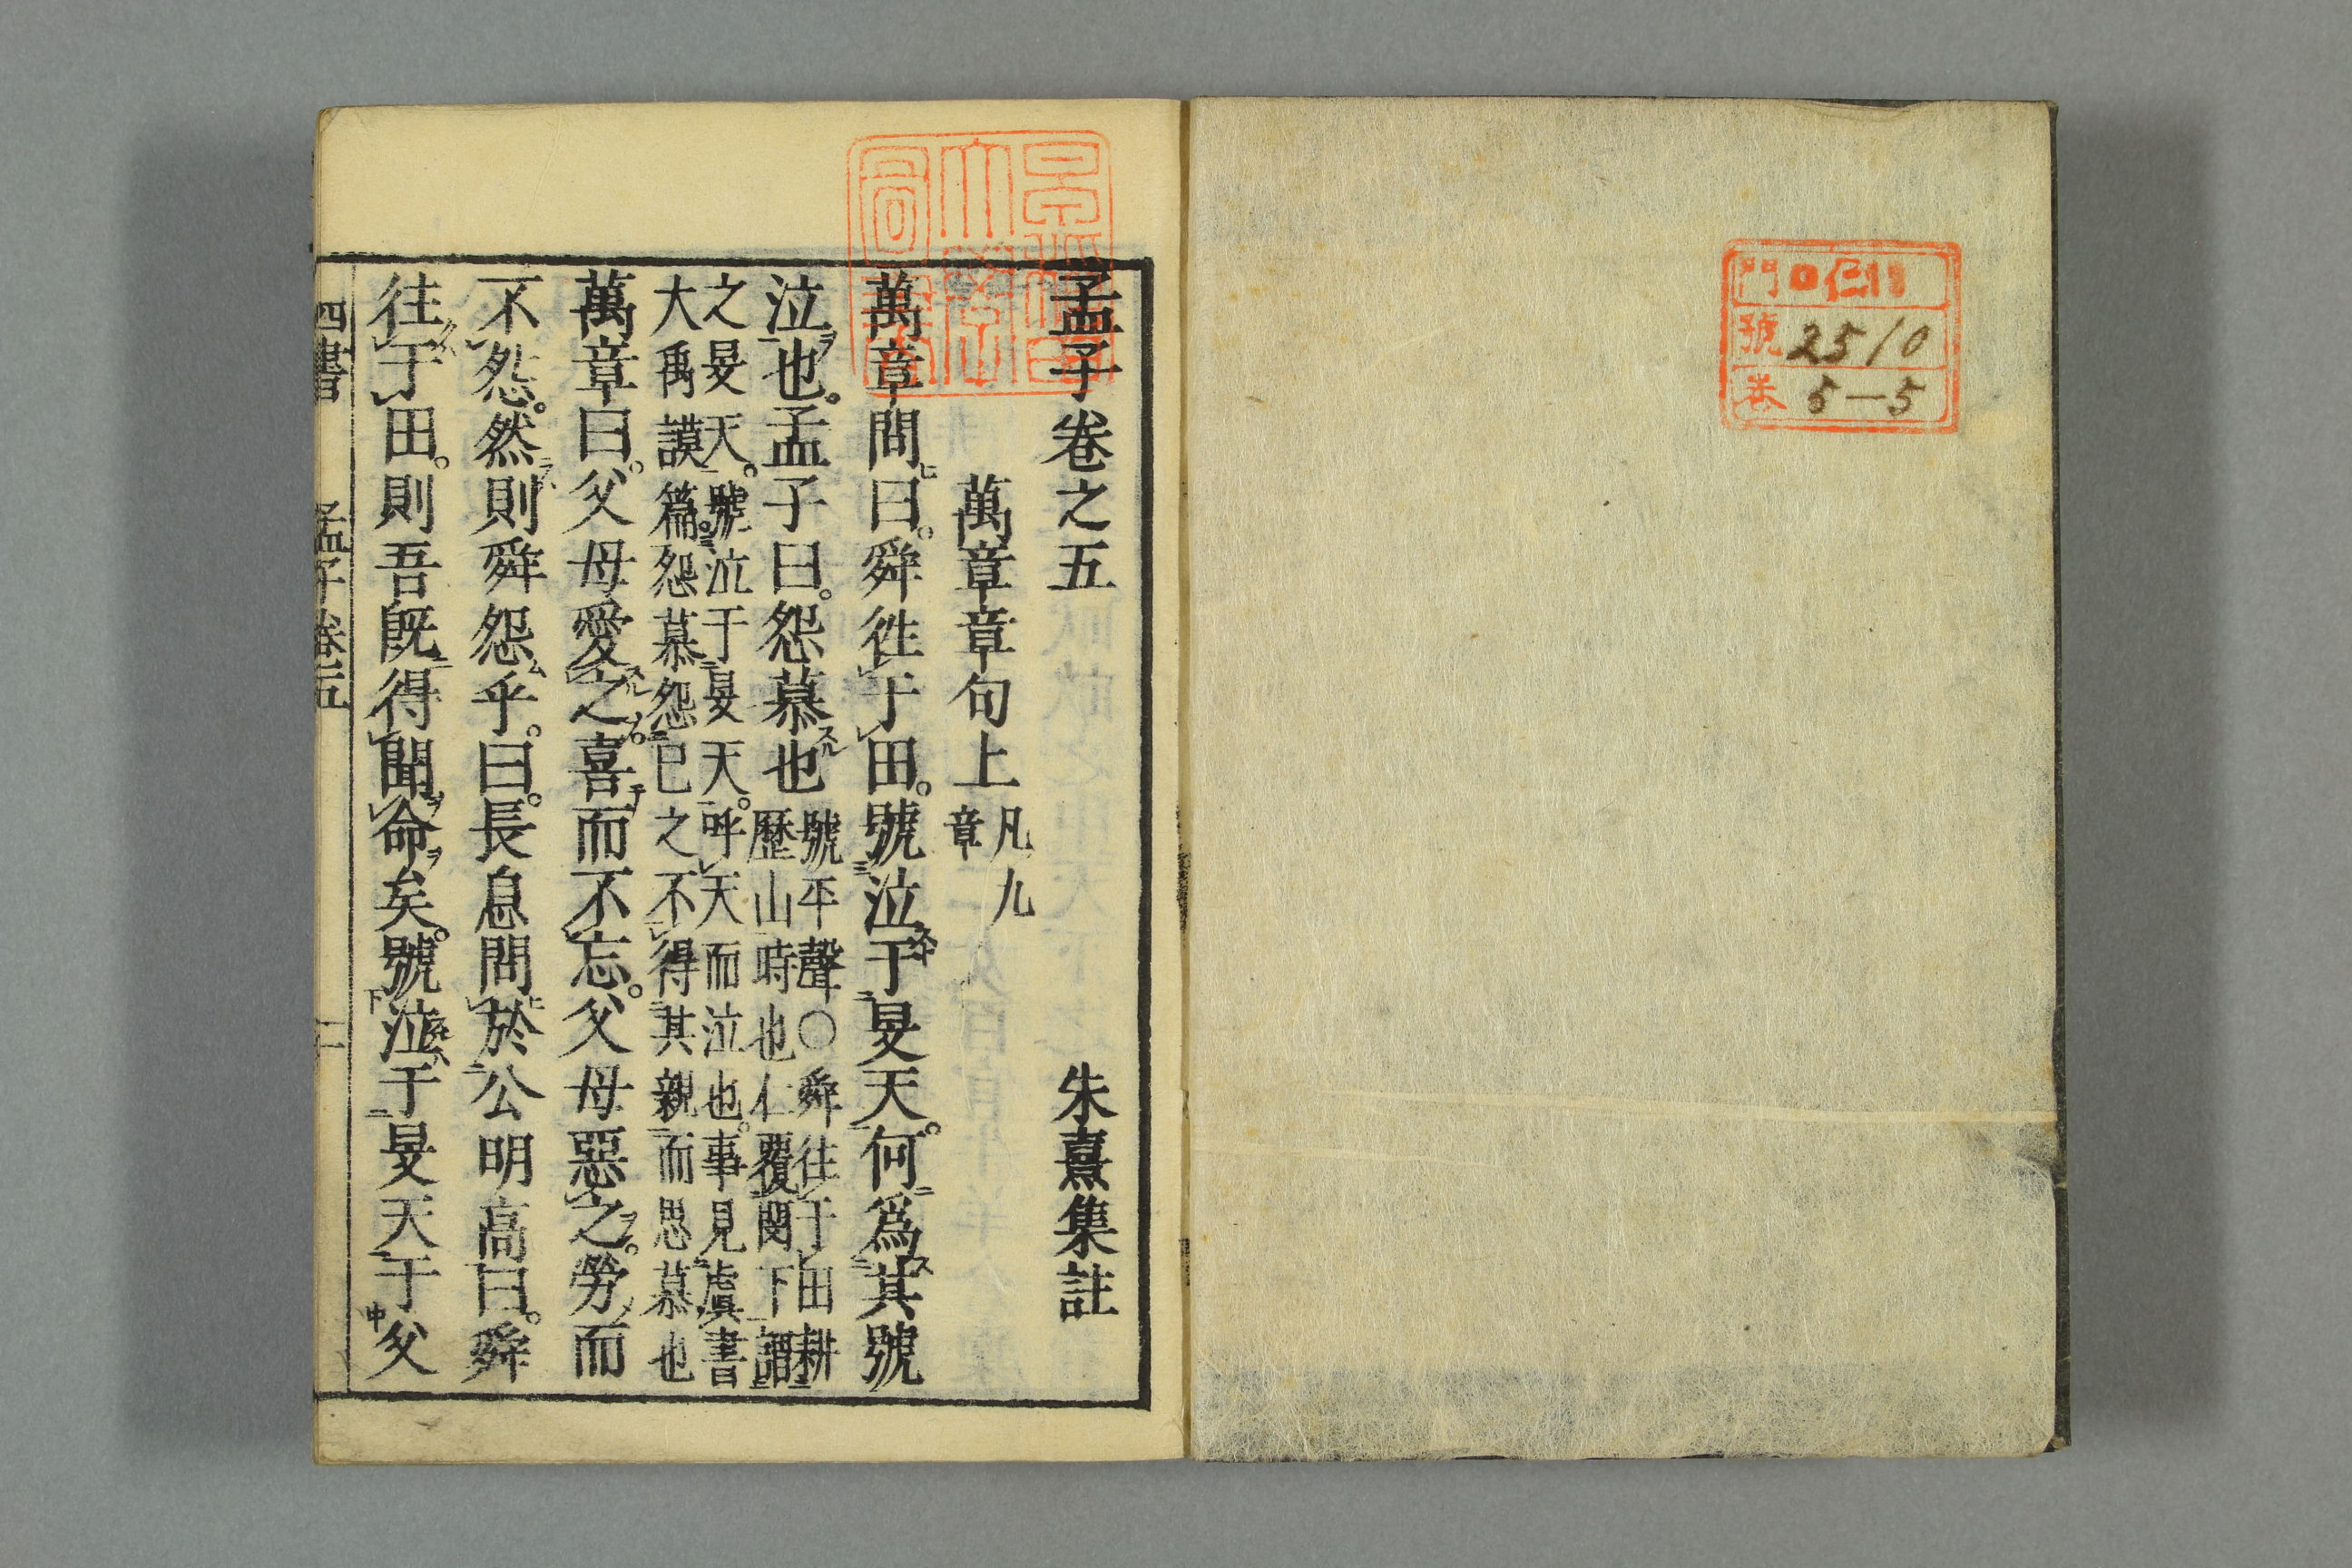 門 仁
號 2510
卷 5-5
孟子卷之五 朱熹集註
萬章章句上 凡九
章
萬章問曰。舜往于田。號泣于旻天。何爲其號
泣也。孟子曰。怨慕也
號平聲○舜往于田耕
歷山時也仁覆閔下謂
之旻天。號泣于旻天。呼天而泣也。事見虞書
大禹謨篇。怨慕怨己之不得其親而思慕也
萬章曰。父母愛之。喜而不忘。父母惡之。勞而
不怨。然則舜怨乎。曰。長息問於公明高曰。舜
往于田。則吾既得聞命矣。號泣于旻天于父
四書 孟子卷五